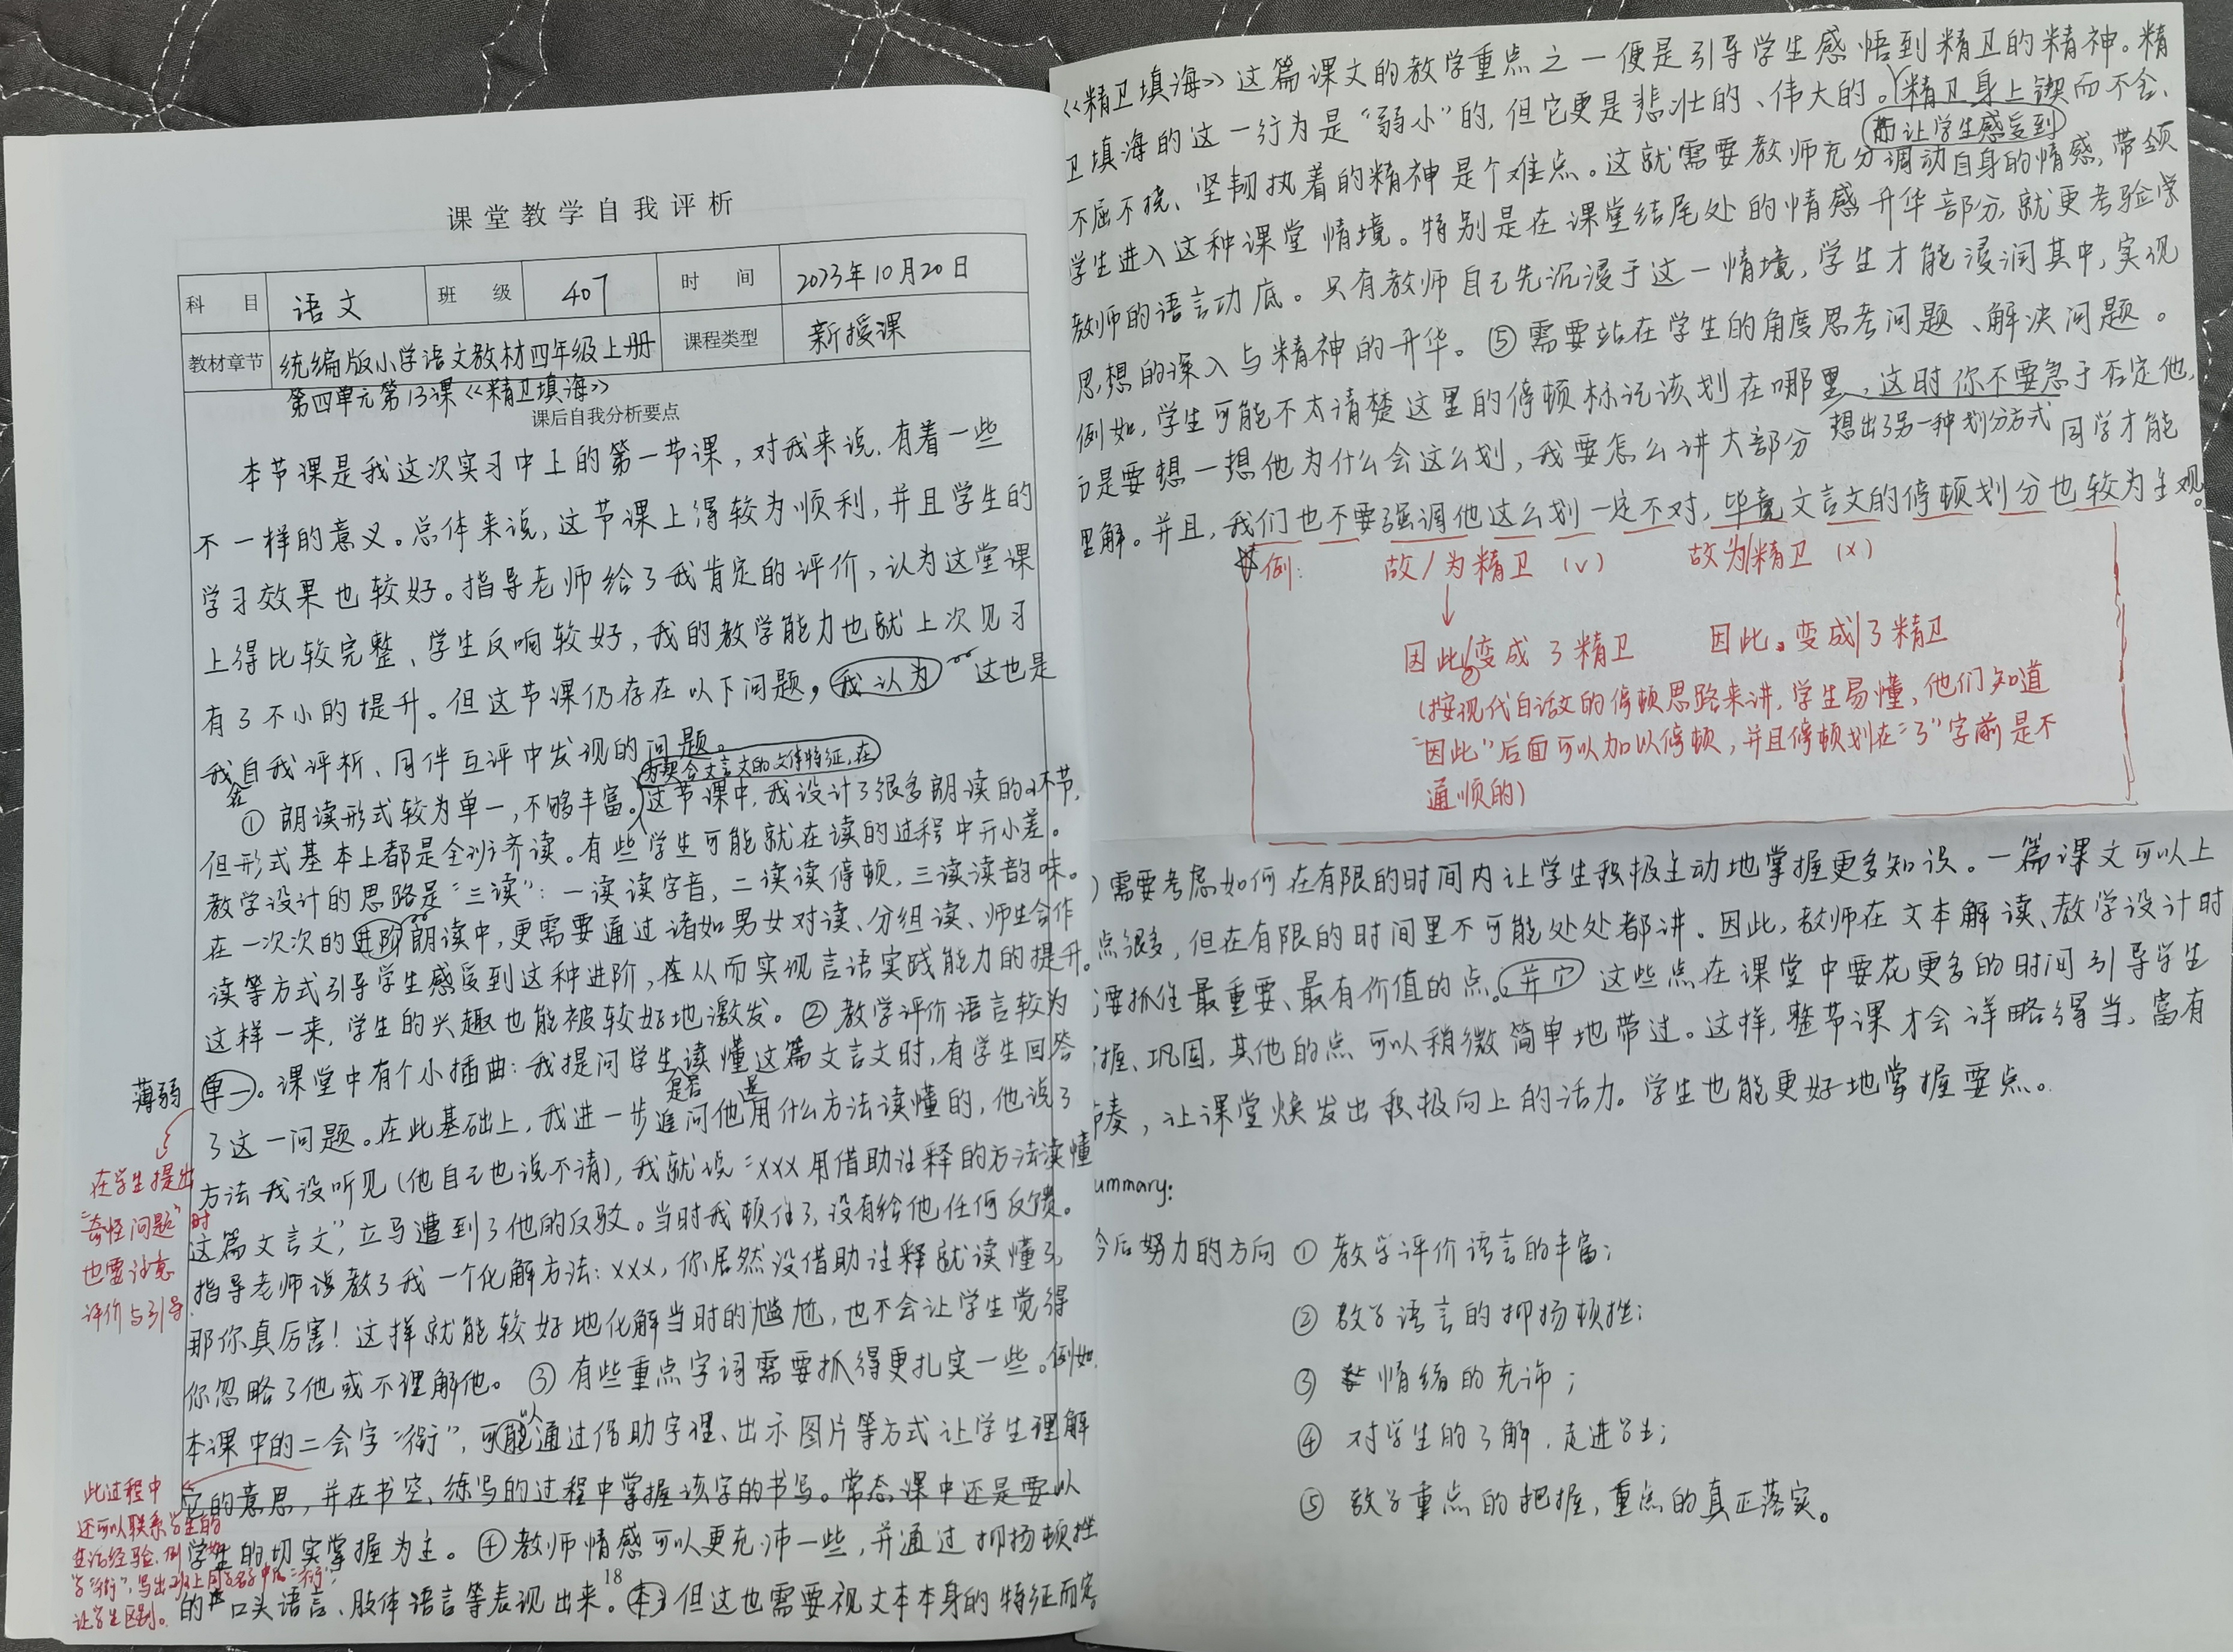 课堂教学自我评析
科 目 语文 班 级 407 时 间 2023年10月20日
教材章节 统编版小学语文教材四年级上册 课程类型 新授课
第四单元第13课《精卫填海》
课后自我分析要点
本节课是我这次实习中上的第一节课，对我来说，有着一些
不一样的意义。总体来说，这节课上得较为顺利，并且学生的
学习效果也较好。指导老师给了我肯定的评价，认为这堂课
上得比较完整、学生反响较好，我的教学能力也就上次见习
有了不小的提升。但这节课仍存在以下问题，我认为 这也是
我在自我评析、同伴互评中发现的问题。
为契合文言文的文体特征，在
① 朗读形式较为单一，不够丰富。这节课中，我设计了很多朗读的环节，
但形式基本上都是全班齐读。有些学生可能就在读的过程中开小差。
教学设计的思路是“三读”：一读读字音，二读读停顿，三读读韵味。
在一次次的进阶朗读中，更需要通过诸如男女对读、分组读、师生合作
读等方式引导学生感受到这种进阶，从而实现言语实践能力的提升。
这样一来，学生的兴趣也能被较好地激发。② 教学评价语言较为
薄弱 单一。课堂中有个小插曲：我提问学生是否读懂这篇文言文时，有学生回答
了这一问题。在此基础上，我进一步追问他是用什么方法读懂的，他说了
方法我没听见（他自己也说不清），我就说“×××用借助注释的方法读懂
这篇文言文”，立马遭到了他的反驳。当时我顿住了，没有给他任何反馈。
指导老师教了我一个化解方法：×××，你居然没借助注释就读懂了，
那你真厉害！这样就能较好地化解当时的尴尬，也不会让学生觉得
你忽略了他或不理解他。③ 有些重点字词需要抓得更扎实一些。例如，
本课中的二会字“衔”，可以通过借助字理、出示图片等方式让学生理解
它的意思，并在书空、练写的过程中掌握该字的书写。常态课中还是要以
学生的切实掌握为主。④ 教师情感可以更充沛一些，并通过抑扬顿挫
的口头语言、肢体语言等表现出来。但这也需要视文本本身的特征而定
18
在学生提出
“奇怪问题”时
也需注意
评价与引导
此过程中
还可以联系学生的
生活经验，例如
学“衔”，写出班上同学名字中的“衍”，
让学生区别。
《精卫填海》这篇课文的教学重点之一便是引导学生感悟到精卫的精神。精
卫填海的这一行为是“弱小”的，但它更是悲壮的、伟大的。精卫身上锲而不舍、
而让学生感受到
不屈不挠、坚韧执着的精神是个难点。这就需要教师充分调动自身的情感，带领
学生进入这种课堂情境。特别是在课堂结尾处的情感升华部分，就更考验
教师的语言功底。只有教师自己先沉浸于这一情境，学生才能浸润其中，实现
思想的深入与精神的升华。⑤ 需要站在学生的角度思考问题、解决问题。
例如，学生可能不太清楚这里的停顿标记该划在哪里，这时你不要急于否定他，
是要想一想他为什么会这么划，我要怎么讲大部分想出了另一种划分方式同学才能
理解。并且，我们也不要强调他这么划一定不对，毕竟文言文的停顿划分也较为主观。
例： 故/为精卫（√） 故为/精卫（×）
因此/变成了精卫 因此变成/了精卫
（按现代白话文的停顿思路来讲，学生易懂，他们知道
“因此”后面可以加以停顿，并且停顿划在“了”字前是不
通顺的）
需要考虑如何在有限的时间内让学生积极主动地掌握更多知识。一篇课文可以上
点很多，但在有限的时间里不可能处处都讲。因此，教师在文本解读、教学设计时
要抓住最重要、最有价值的点。这些点在课堂中要花更多的时间引导学生
握、巩固，其他的点可以稍微简单地带过。这样，整节课才会详略得当，富有
节奏，让课堂焕发出积极向上的活力。学生也能更好地掌握要点。
ummary:
今后努力的方向 ① 教学评价语言的丰富；
② 教学语言的抑扬顿挫；
③ 情绪的充沛；
④ 对学生的了解，走进学生；
⑤ 教学重点的把握，重点的真正落实。